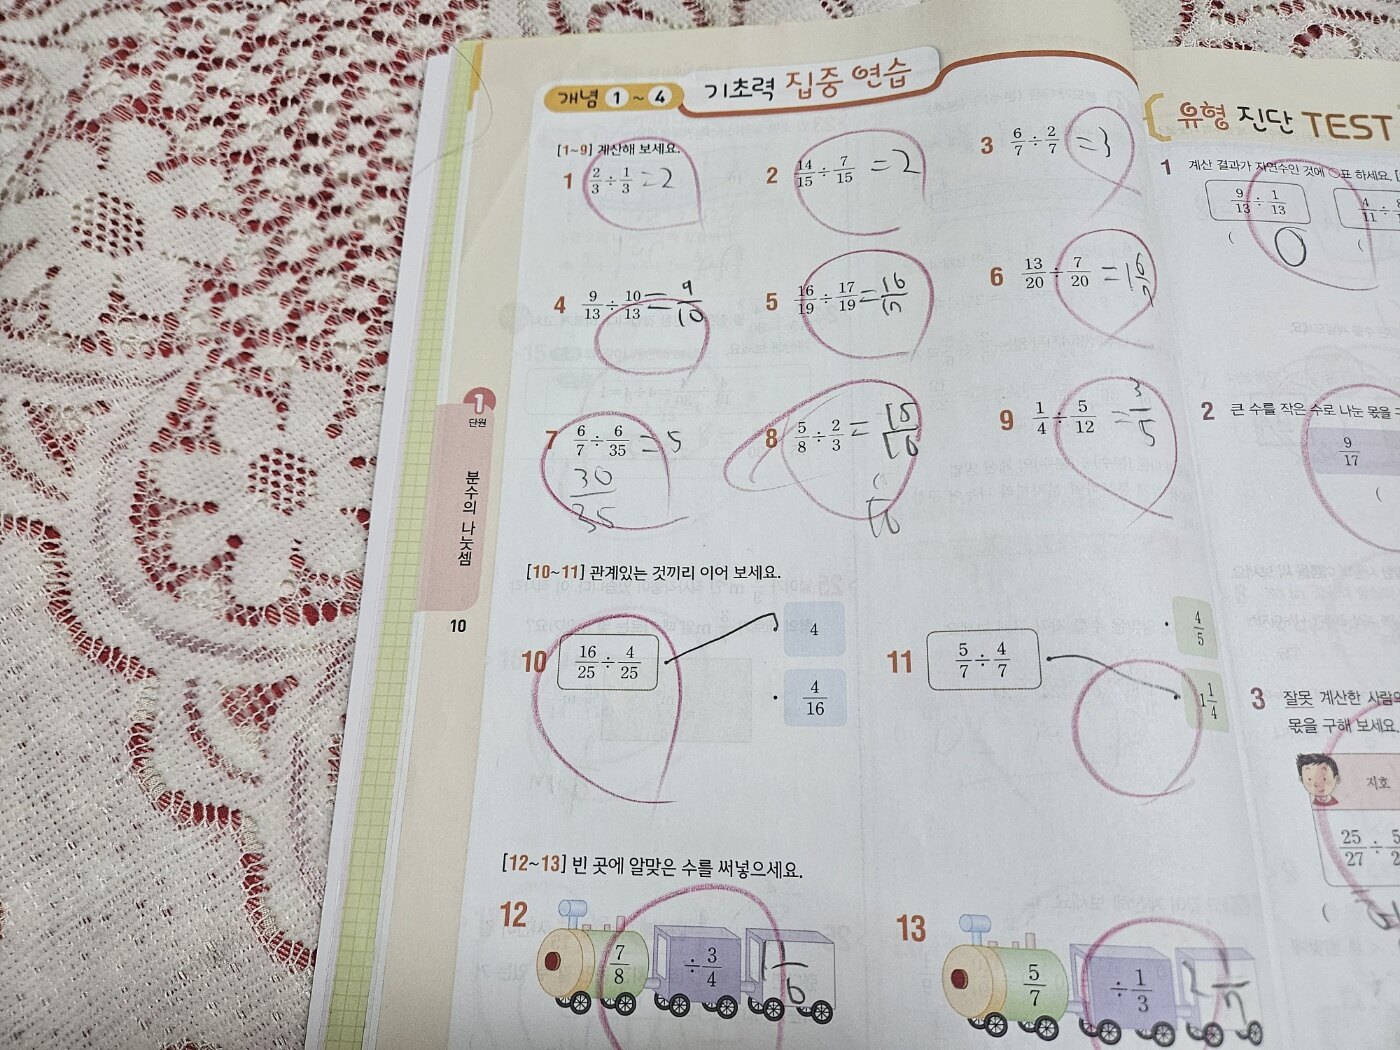 개념 1 ~ 4 기초력 집중 연습
[1~9] 계산해 보세요.
1 2/3 ÷ 1/3 = 2
2 14/15 ÷ 7/15 = 2
3 6/7 ÷ 2/7 = 3
4 9/13 ÷ 10/13 = 9/10
5 16/19 ÷ 17/19 = 16/17
6 13/20 ÷ 7/20 = 1 6/7
7 6/7 ÷ 6/35 = 5
30/35
8 5/8 ÷ 2/3 = 15/16
9 1/4 ÷ 5/12 = 3/5
[10~11] 관계있는 것끼리 이어 보세요.
10 16/25 ÷ 4/25
4
4/16
11 5/7 ÷ 4/7
4/5
1 1/4
[12~13] 빈 곳에 알맞은 수를 써넣으세요.
12 7/8 ÷ 3/4 1 1/6
13 5/7 ÷ 1/3 2 1/7
1 단원
분수의 나눗셈
10
유형 진단 TEST
1 계산 결과가 자연수인 것에 ○표 하세요. [
9/13 ÷ 1/13
4/11 ÷
( O
(
2 큰 수를 작은 수로 나눈 몫을
9/17
(
3 잘못 계산한 사람의
몫을 구해 보세요.
지호
25/27 ÷
(